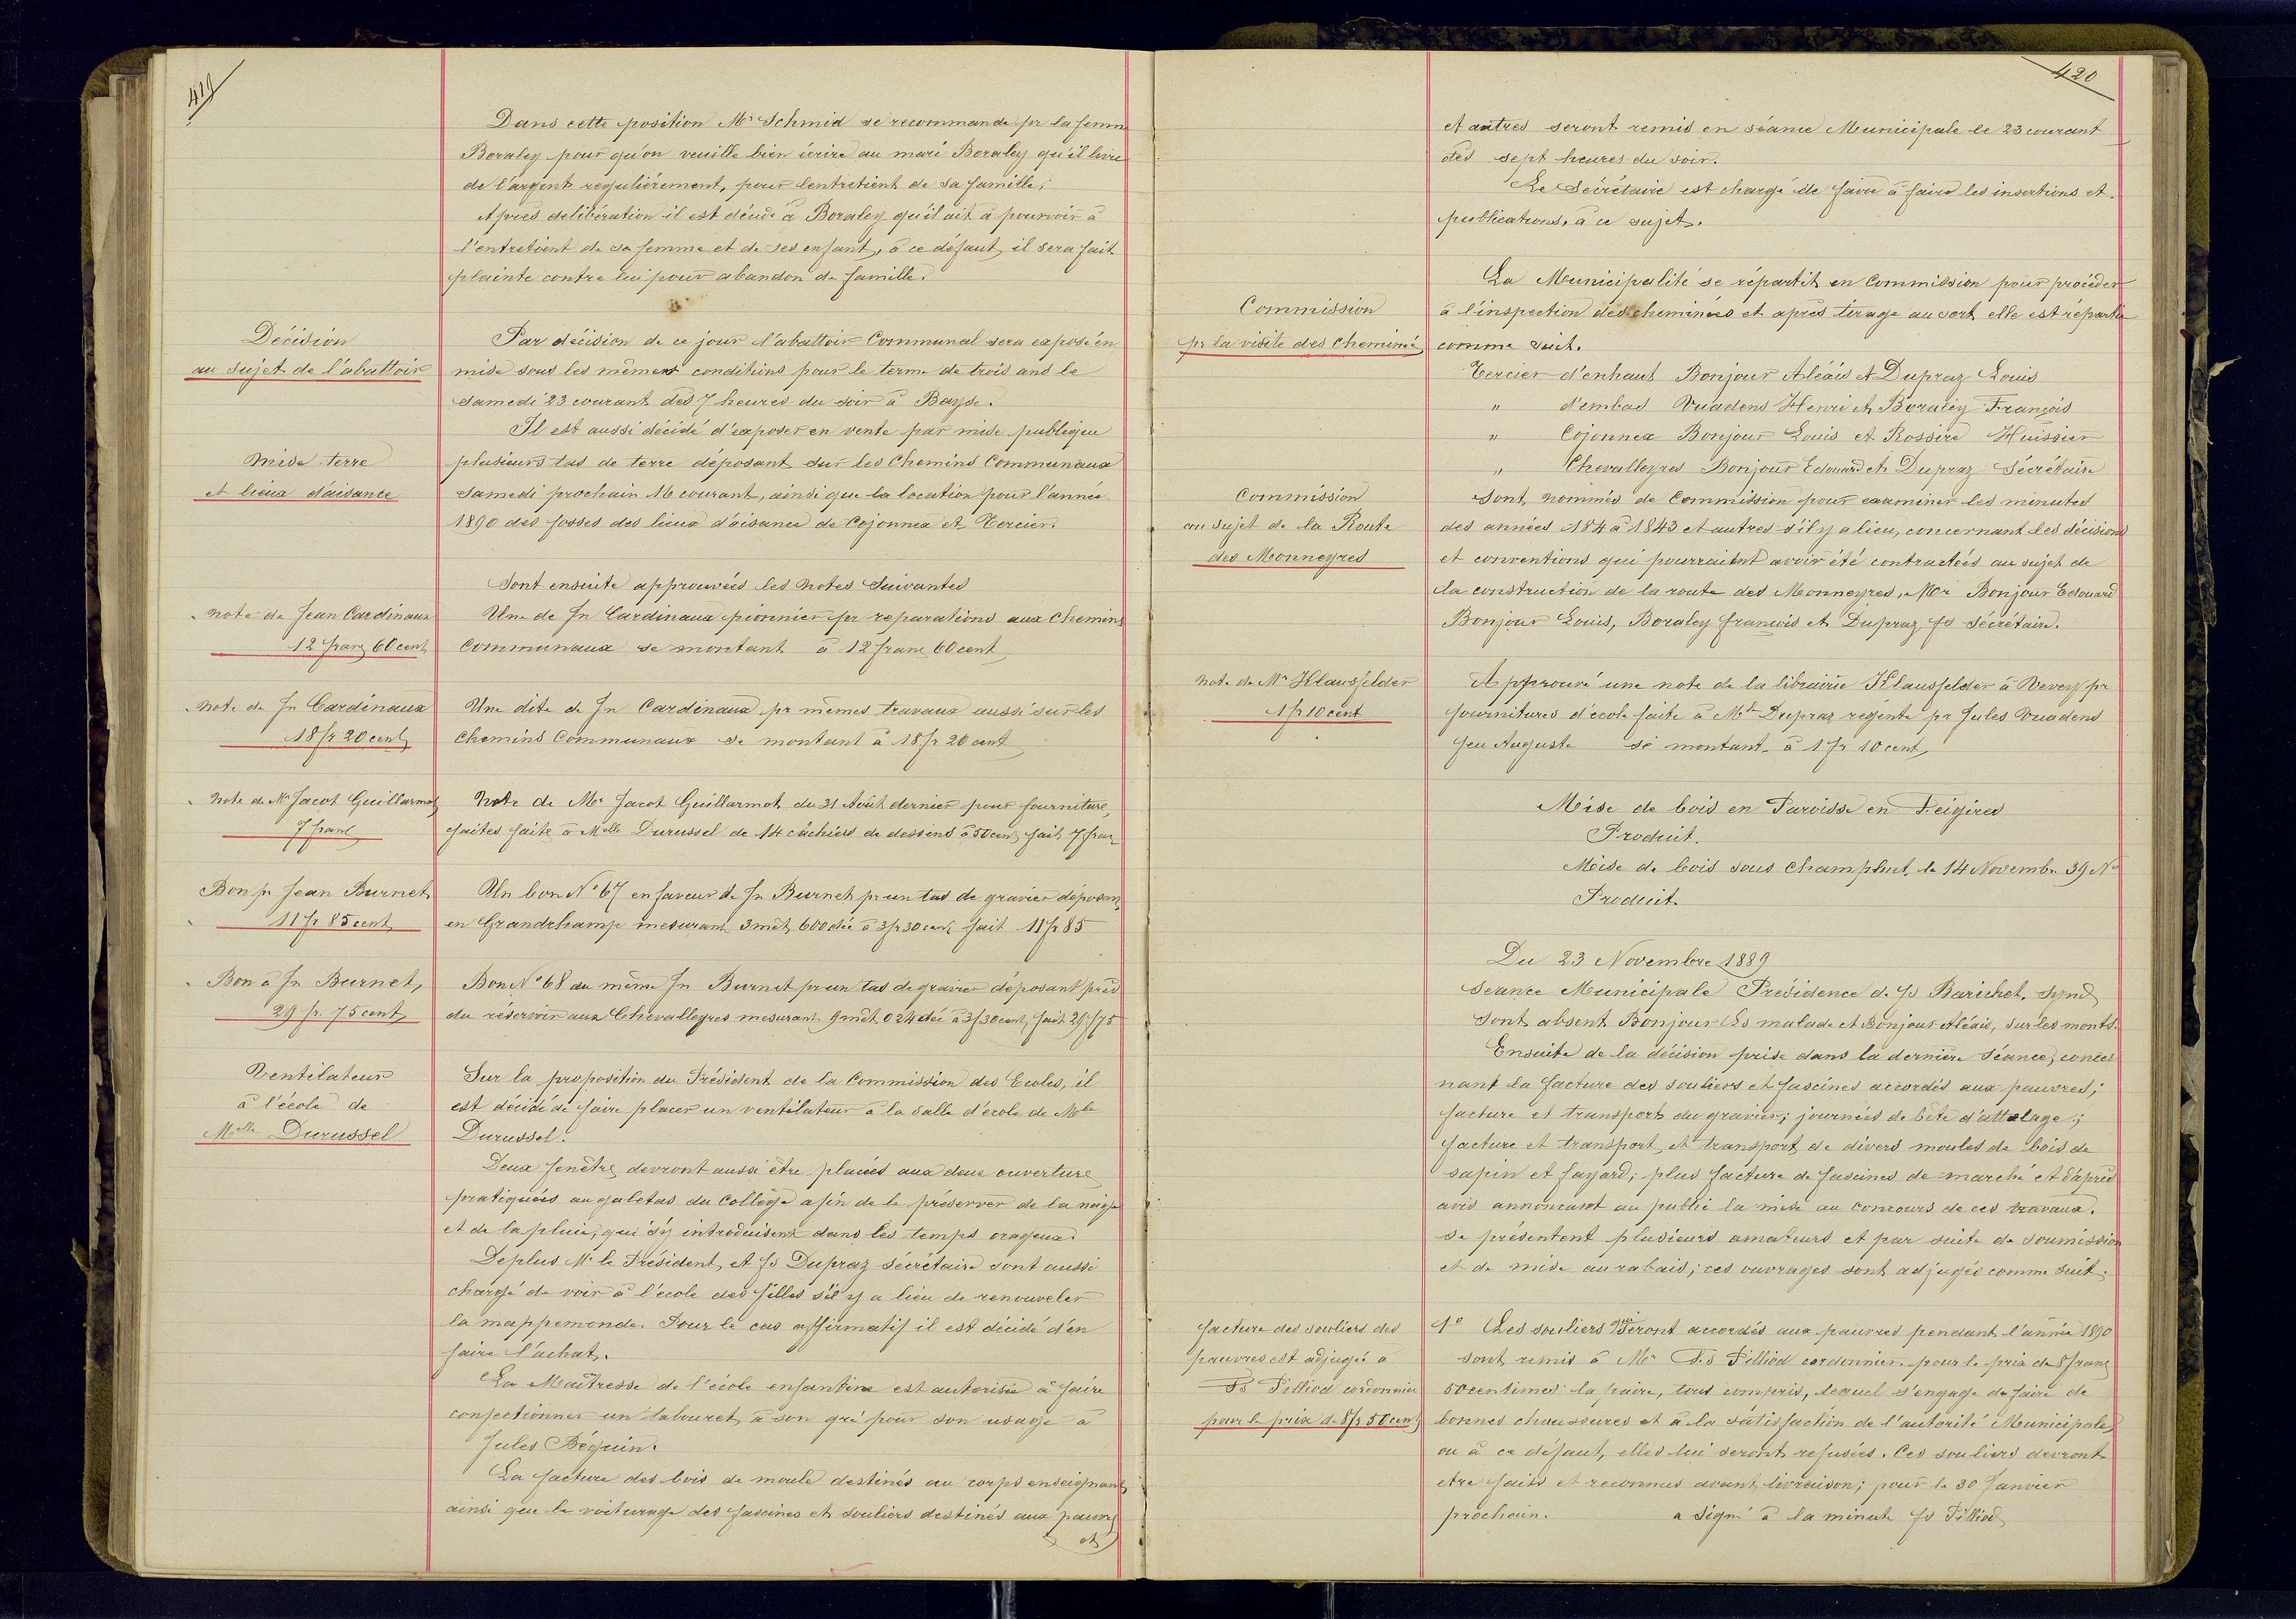 419
Dans cette position Mr Schmid se recommande pr la femme
Boraley pour qu'on veuille bien écrire au mari Boraley qu'il livre
de l'argent regulièrement, pour lentretient de sa famille;
Après delibération il est décidé à Boraley qu'il ait à pourvoir à
l'entretient de sa femme et de ses enfant, à ce défaut il sera fait
plainte contre lui pour abandon de famille.
Décision
au sujet de l'abattoir
Par décision de ce jour l'abattoir Communal sera exposé en
mise sous les mêmes conditions pour le terme de trois ans le
samedi 23 courant dès 7 heures du soir à Bayse.
Il est aussi décidé d'exposer en vente par mise publique
mise terre
et lieux d'aisance
plusieurs tas de terre déposant sur les Chemins Communaux
samedi prochain 16 courant, ainsi que la location pour l'année
1890 des fosses des lieux d'aisance de Cojonnex et Tercier.
Sont ensuite approuvées les notes Suivantes
note de Jean Cardinaux
12 franc 60 cent
Une de Jn Cardinaux pionnier pr reparations aux Chemins
Communaux se montant à 12 franc 60 cent
note de Jn Cardinaux
18 fr 20 cent
Une dite de Jn Cardinaux pr mêmes travaux aussi sur les
Chemins Communaux se montant à 18 fr 20 cent
note de Mr Jacot Guillarmot
7 franc
Note de Mr Jacot Guillarmot du 31 Août dernier pour fourniture
faites faite à Melle Durussel de 14 câchiers de dessins à 50 cent fait 7 franc
Bon pr Jean Burnet
11 fr 85 cent
Un bon No 67 en faveur de Jn Burnet pr un tas de gravier déposant
en Grandchamp mesurant 3 mèt 600 déc à 3 fr 30 cent fait 11 fr 85
Bon à Jn Burnet,
29 fr. 75 cent
Bon No 68 au même Jn Burnet pr un tas de gravier déposant près
du réservoir aux Chevalleyres mesurant 9 mèt 024 déc à 3 f 30 cent, fait 29 f 75
Ventilateur
à l'école de
Melle Durussel
Sur la proposition du Président de la Commission des Ecoles, il
est décidé de faire placer un ventilateur à la salle d'école de Mlle
Durussel.
Deux fenêtre devront aussi être placées aux deux ouverture
pratiquées au galetas du Collège afin de le préserver de la neige
et de la pluie, qui s'y introduisent dans les temps orageux.
Deplus Mr le Président et fs Dupraz sécrétaire sont aussi
chargé de voir à l'école des filles s'il y a lieu de renouveler
la mappemonde. Pour le cas affirmatif il est décidé d'en
faire l'achat.
La Maîtresse de l'école enfantine est autorisée à faire
confectionner un tabouret à son gré pour son usage à
Jules Béguin.
La facture des bois de moule destinés au corps enseignant
ainsi que le voiturage des fascines et souliers destinés aux pauvres
et
420
et autres seront remis en séance Municipale le 23 courant
dès sept heures du soir.
Le Sécrétaire est chargé de faire à faire les insertions et
publications, à ce sujet.
Commission
pr la visite des Cheminée
La Municipalité se répartit en Commission pour procéder
à l'inspection des cheminées et après tirage au sort elle est répartie
comme suit.
Tercier d'enhaut Bonjour Aléxis et Dupraz Louis
" d'embas Vuadens Henri et Boraley François
" Cojonnex Bonjour Louis et Rossire Huissier
" Chevalleyres Bonjour Edouard et Dupraz Sécrétaire
Commission
au sujet de la Route
des Monneyres
Sont nommés de Commission pour examiner les minutes
des années 184 à 1843 et autres s'il y a lieu, concernant les décisions
et conventions qui pourraient avoir été contractées au sujet de
la construction de la route des Monneyres, Mr Bonjour Edouard
Bonjour Louis, Boraley françois et Dupraz fs sécrétaire.
Note de Mr Klausfelder
1 fr 10 cent
Approuvé une note de la librairie Klausfelder à Vevey pr
fournitures d'école faite à Mr Dupraz regente pr Jules Vuadens
feu Auguste se montant à 1 fr 10 cent
Mise de bois en Paroisse en Feigires
Produit.
Mise de bois sous Champluet, le 14 Novembre 39 No
Produit.
Du 23 Novembre 1889
Seance Municipale Présidence de fs Barichet, Synd
Sont absent Bonjour Ls malade et Bonjour Aléxis, sur les monts.
Ensuite de la décision prise dans la dernière Séance, concer
nant la facture des souliers et fascines accordés aux pauvres;
facture et transport du gravier; journées de bête d'attelage;
facture et transport, et transport de divers moules de bois de
sapin et fayard; plus facture de fascines de marché et d'après
avis annoncant au public la mise au concours de ces travaux.
se présentent plusieurs amateurs et par suite de soumission
et de mise au rabais; ces ouvrages sont adjugés comme suit;
facture des souliers des
pauvres est adjugée à
Fs Pilliod cordonnier
pour le prix de 8 fr 50 cent
1o Les souliers qui seront accordés aux pauvres pendant l'année 1890
sont remis à Mr Fs Pilliod cordonnier pour le prix de 8 franc
50 centimes la paire, tout compris, lequel s'engage de faire de
bonnes chaussures et à la satisfaction de l'autorité Municipale,
ou à ce défaut, elles lui seront refusées. Ces souliers devront
etre faits et reconnus avant livraison; pour le 30 Janvier
prochain. a signé à la minute fs Pilliod